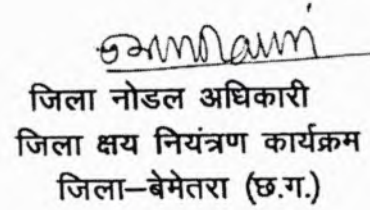 जिला नोडल अधिकारी
जिला क्षय नियंत्रण कार्यक्रम
जिला–बेमेतरा (छ.ग.)